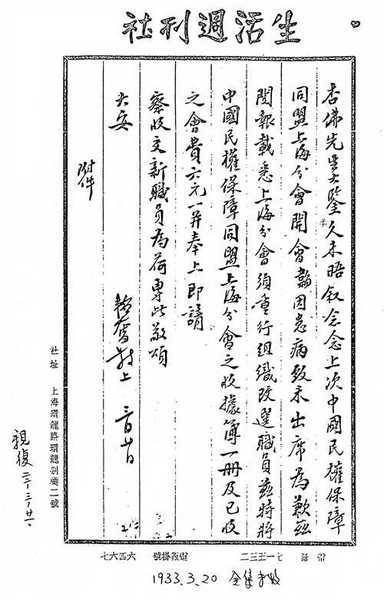 生活週刊社
杏佛先生大鑒久未晤叙念念上次中國民權保障
同盟上海分會開會韜因患病致未出席為歉茲
閱報載悉上海分會須重行組織改選職員茲特將
中國民權保障同盟上海分會之收據簿一冊及已收
之會費六元一并奉上即請
察收交新職員為荷專此敬頌
大安
韜奮謹上 三月廿日
附件
社址 上海環龍路環龍別業二號
電話 七一五三二
電報掛號 六四六七
1933.3.20